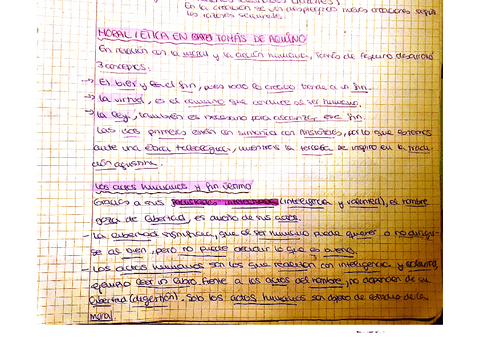 En la creación
los
MORAL / ÉTICA EN TOMÁS DE AQUINO
En relación con la moral y la acción humana, Tomás de Aquino desarrolla
3 conceptos.
→ El bien y es el fin, pues todo lo creado tiende a un fin.
→ La virtud, es el camino que conduce al ser humano.
→ La ley, también es necesaria para alcanzar ese fin.
Las dos primeras están con sintonía con Aristóteles, por lo que estamos
ante una ética teleológica, mientras la tercera se inspira en la tradi
ción agustina.
Los actos humanos y fin último
Gracias a sus facultades (inteligencia y voluntad), el hombre
goza de libertad, es dueño de sus actos.
- La libertad significa, que el ser humano puede querer o no dirigir
se al bien, pero no puede decidir lo que es bueno.
- Los actos humanos son los que realizan con inteligencia y voluntad,
ejemplo leer un libro. Frente a los actos del hombre, no dependen de su
libertad (digestión). Solo los actos humanos son objeto de estudio de la
moral.